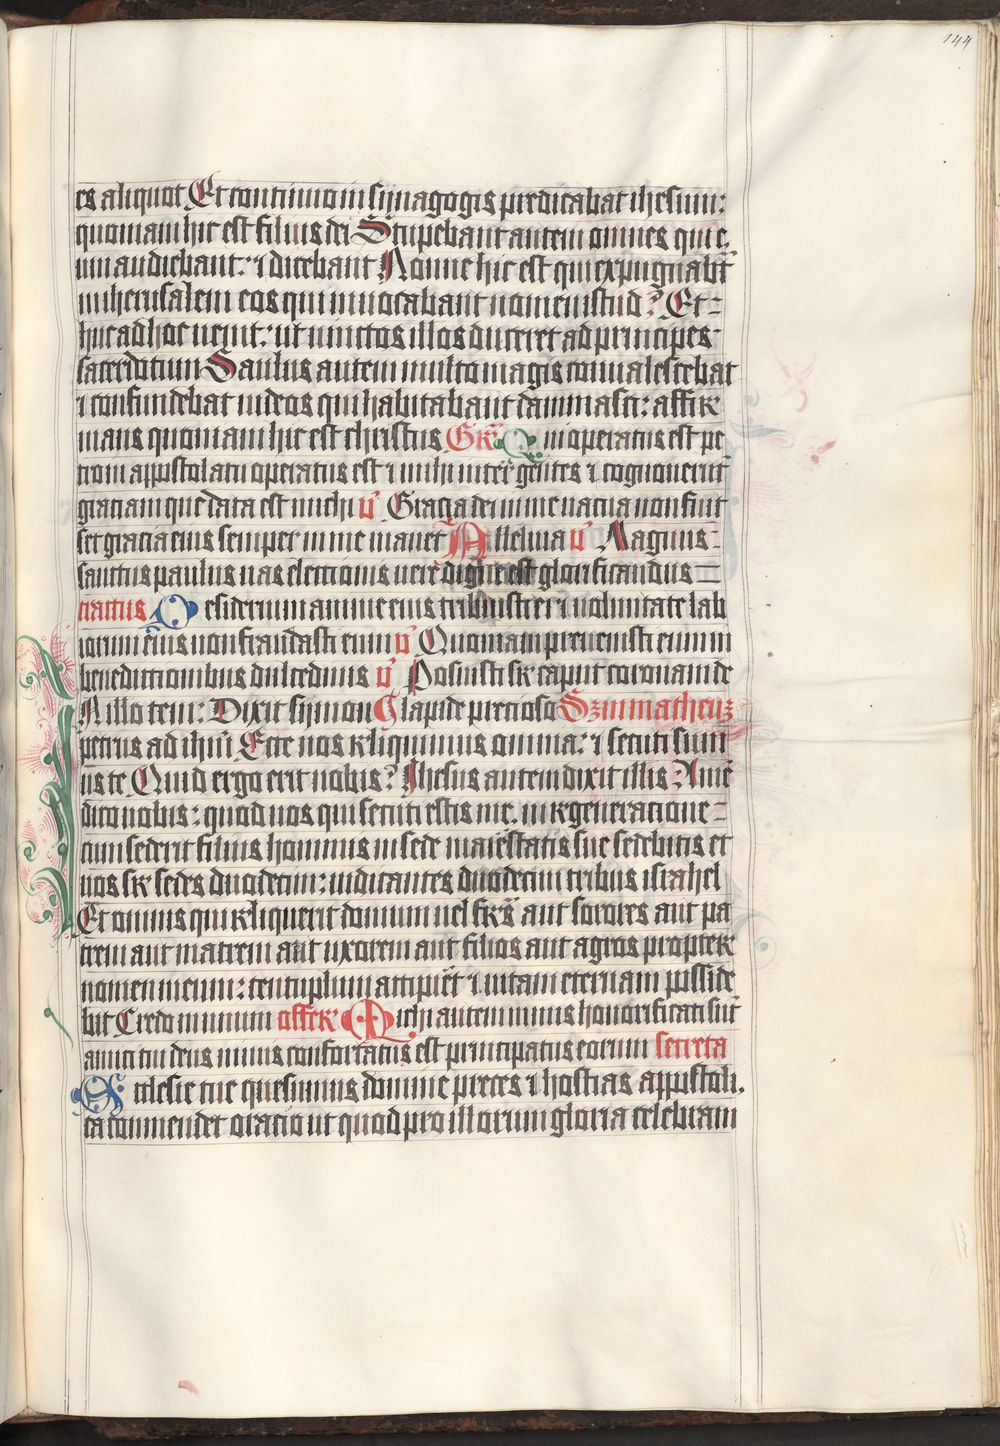 144
es aliquot Et continuo in synagogis predicabat ihesum:
quoniam hic est filius dei Stupebant autem omnes qui e,
um audiebant: ⁊ dicebant Nonne hic est qui expugnabt̄
in iherusalem eos qui inuocabant nomen istud? Et-
huc ad hoc uenit: ut uinctos illos duceret ad principes
sacerdotum Saulus autem multo magis conualescebat
⁊ confundebat iudeos qui habitabant dammasci: affir
mans quoniam hic est christus Gr̄ Qui operatus est pe
tro in appostolatu operatus est ⁊ mihi inter gentes ⁊ cognouerūt
graciam que data est michi v̄ Gracia dei in me uacua non fuit
set gracia eius semper in me manet Alleluia v̄ Magnus
sanctus paulus uas electionis uere digne est glorificandus
tractus Desiderium anime eius tribuisti ei ⁊ uoluntate lab
iorum eius non fraudasti eum v̄ Quoniam preuenisti eum in
benedictionibus dulcedinis v̄ Posuisti sr caput coronam de
lapide precioso Scd̄m matheuz
In illo tem: Dixit symon
petrus ad ihm̄ Ecce nos reliquimus omnia: ⁊ secuti sum̄
us te Quid ergo erit nobis? Ihesus autem dixit illis: Amē
dico uobis: quod uos qui secuti estis me. in regeneracione-
cum sederit filius hominis in sede maiestatis sue sedebitis et
uos sr sedes duodecim: iudicantes duodecim tribus israhel
Et omnis qui reliquerit domum uel frs̄ aut sorores aut pa
trem aut matrem aut uxorem aut filios aut agros propter
nomen meum: centuplum accipiet ⁊ uitam eternam posside
bit Credo in unum offer Michi autem nimis honorificati sūt
amici tui deus nimis confortatus est principatus eorum secreta
Ecclesie tue quesumus domine preces ⁊ hostias appostoli.
ca commendet oracio ut quod pro illorum gloria celebram